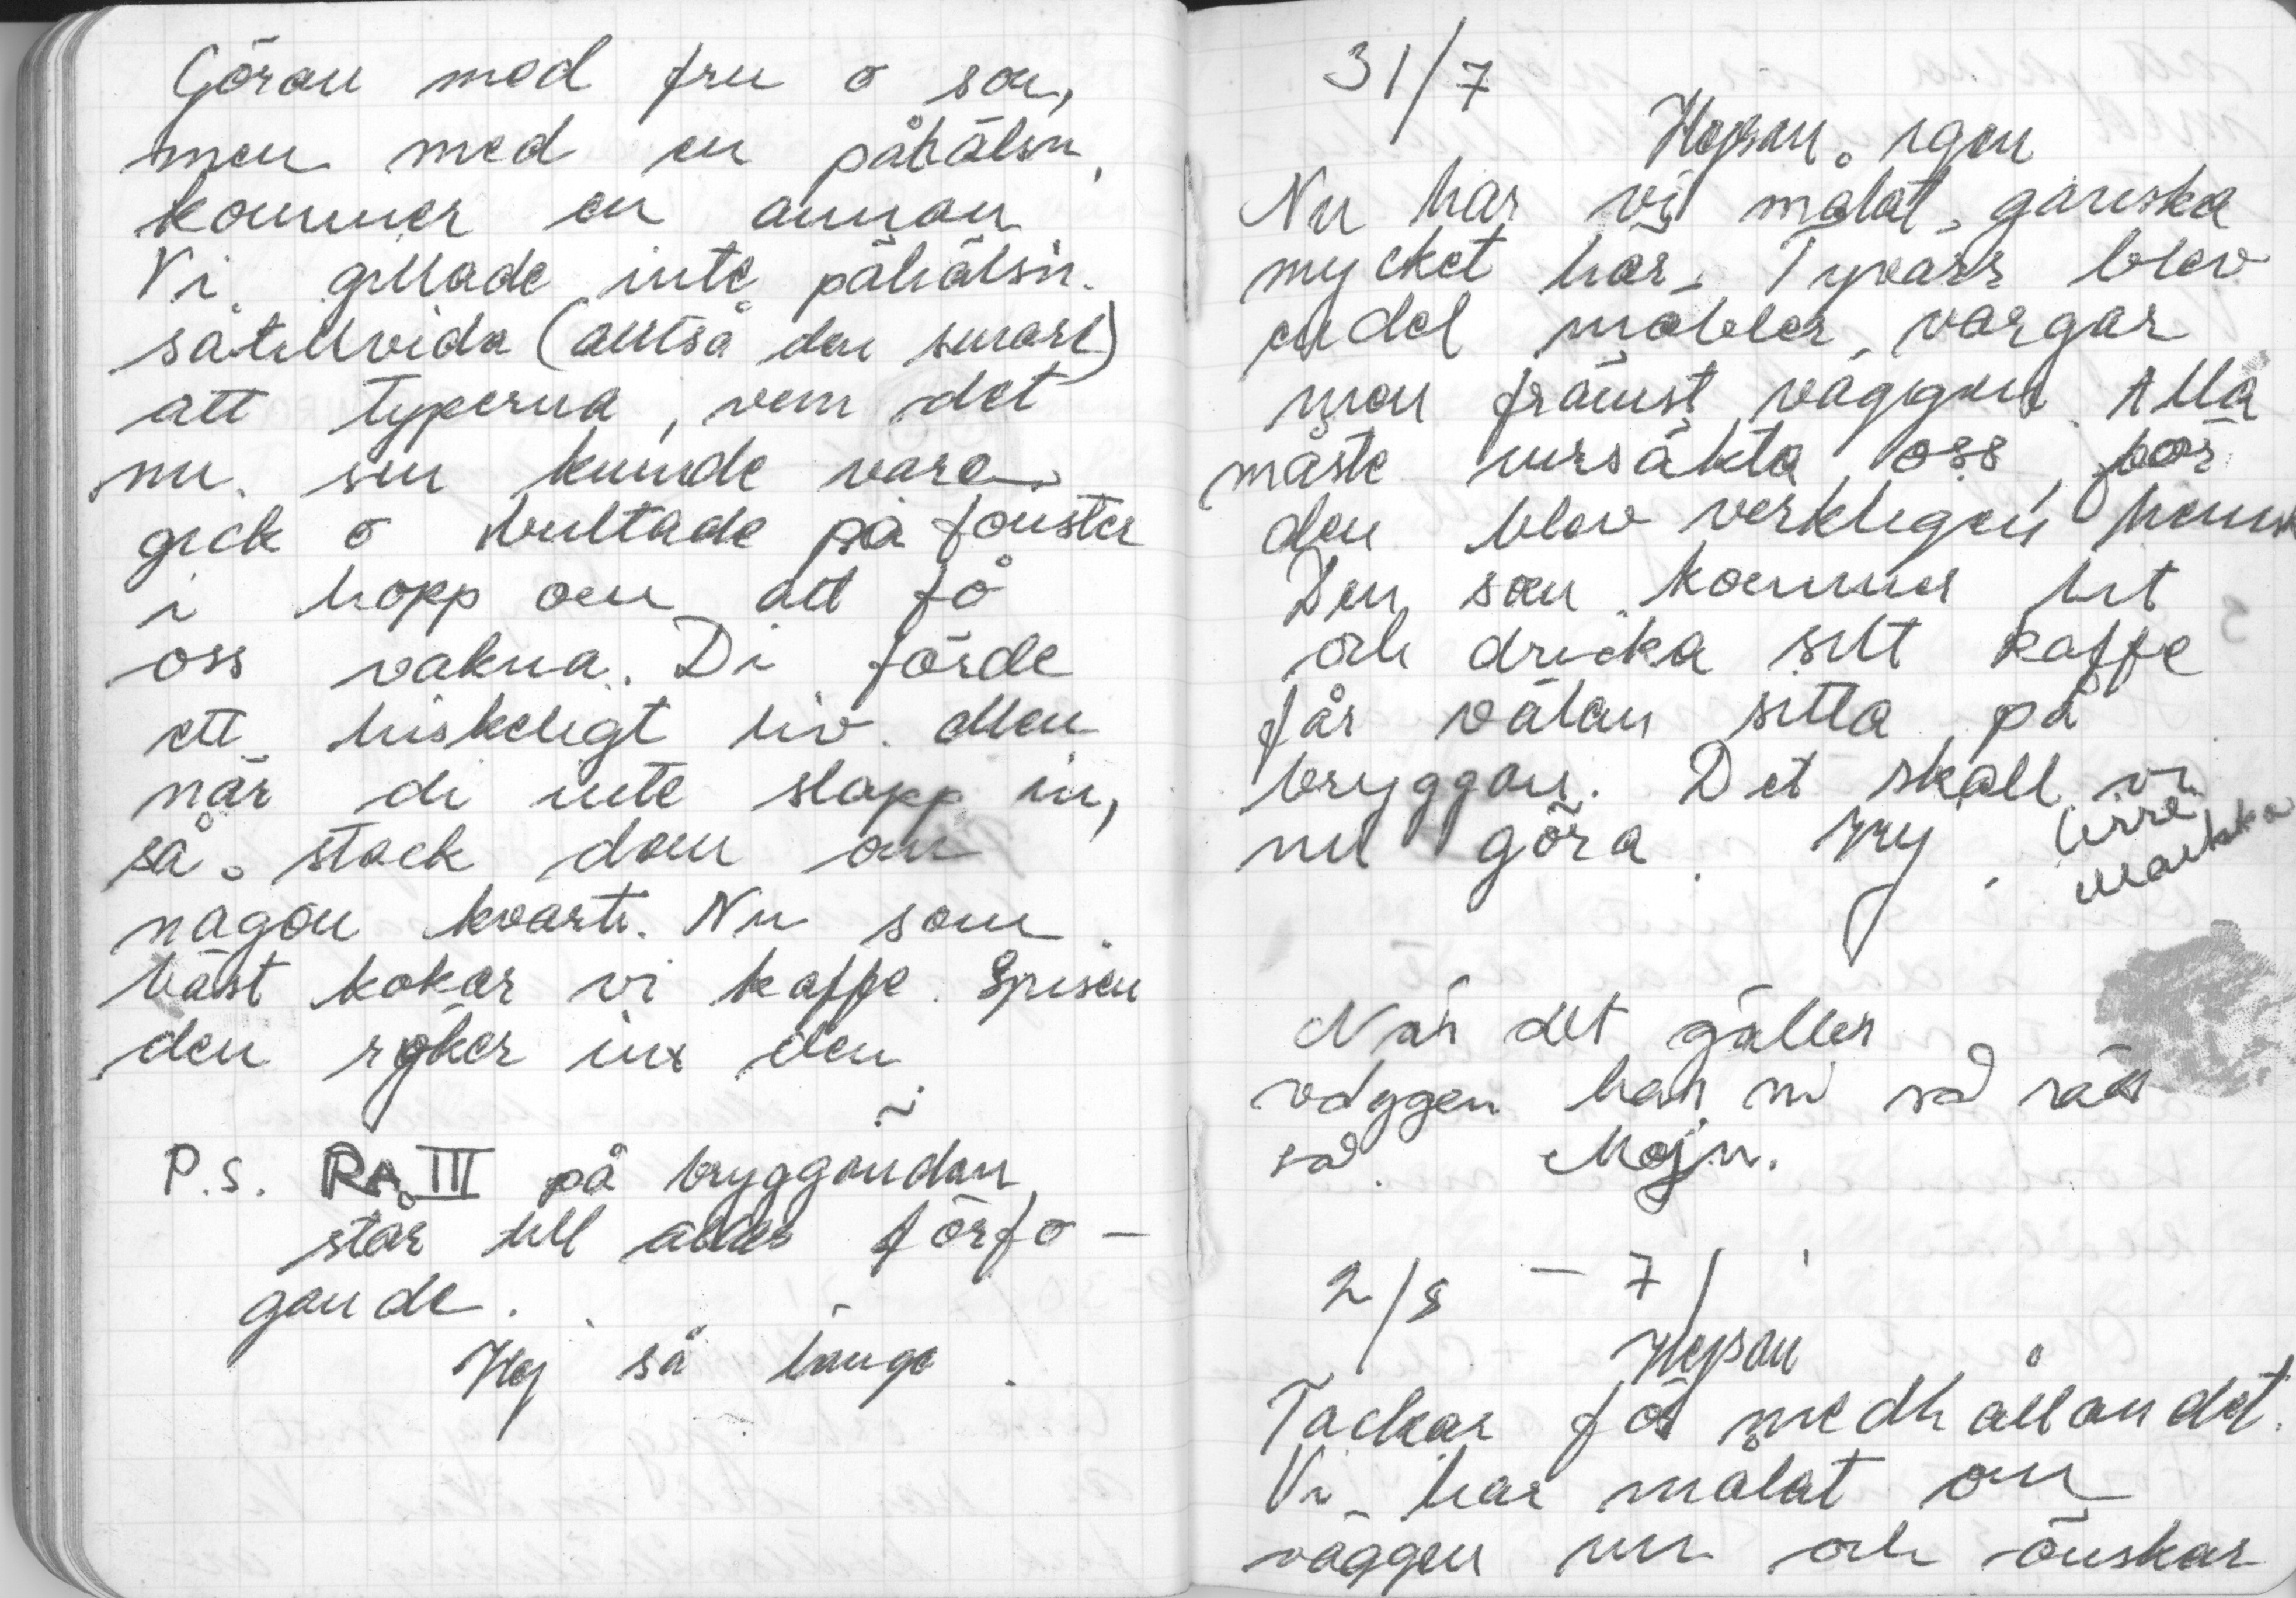 Göran med fru o son,
men med en påhälsn.
kommer en annan
Vi gillade inte påhälsn.
såtillvida (alltså den senare)
att typerna, vem det
nu sen kunde vara
gick o bultade på fönster
i hopp om att få
oss vakna. Di förde
ett hiskeligt liv. Men
när di inte slapp in,
så stack dom om
någon kvart. Nu som
bäst kokar vi kaffe. Spisen
den ryker inx den
P.S. RA III på bryggändan
står till allas förfo-
gande.
Hej så länge.
31/7
Hejsan igen
Nu har vi målat ganska
mycket här. Tyvärr blev
endel möbler, vargar
men främst väggen. Alla
måste ursäkta oss, för
den blev verkligen hemsk
Den som kommer hit
och dricka sitt kaffe
får välan sitta på
bryggan. Det skall vi
nu göra. Hej.
När det gäller
väggen har ni så rätt
så. Mojn.
2/8 - 7/
Hejsan
Tackar för medhållandet.
Vi har målat om
väggen nu och önskar